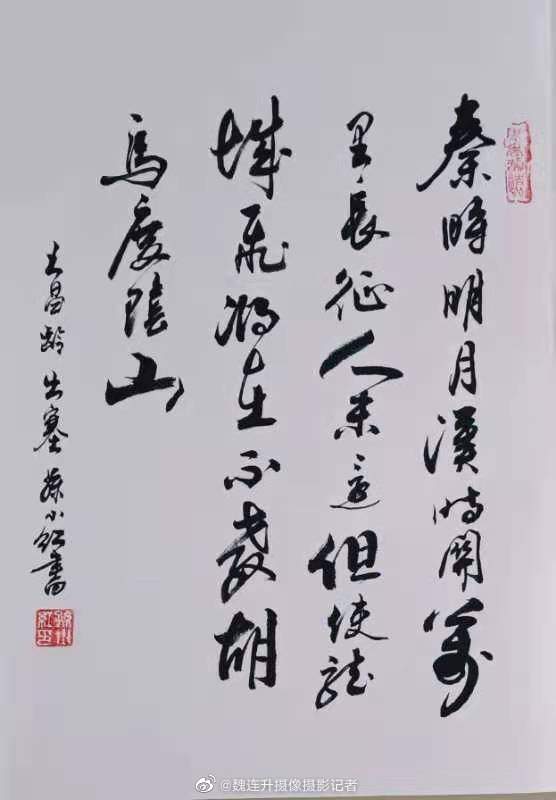 秦時明月漢時關萬
里長征人未還但使龍
城飛將在不教胡
馬度陰山
王昌龄出塞 小红書
@魏连升摄像摄影记者